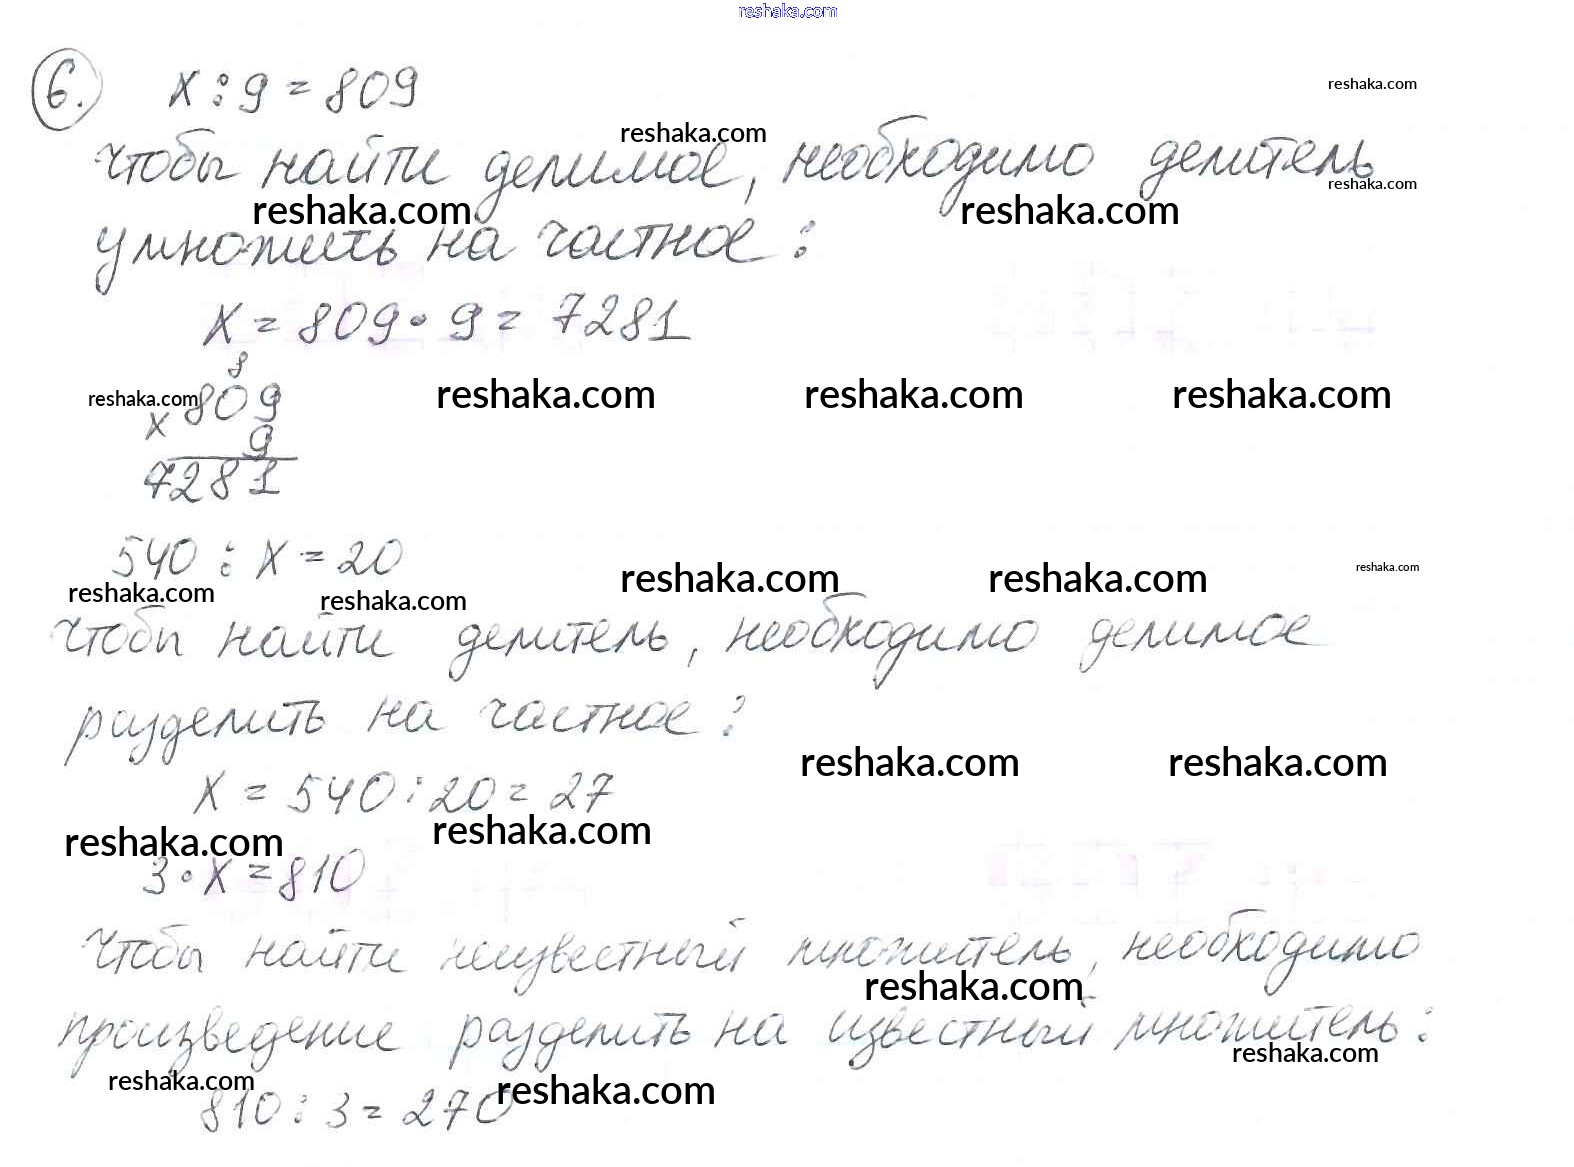 reshaka.com
6. x : 9 = 809
reshaka.com
reshaka.com
Чтобы найти делимое, необходимо делитель
reshaka.com
reshaka.com reshaka.com
умножить на частное:
x = 809 · 9 = 7281
8
reshaka.com reshaka.com reshaka.com reshaka.com
x 809
9
7281
540 : x = 20
reshaka.com reshaka.com reshaka.com
reshaka.com reshaka.com
Чтобы найти делитель, необходимо делимое
разделить на частное:
reshaka.com reshaka.com
x = 540 : 20 = 27
reshaka.com reshaka.com
3 · x = 810
Чтобы найти неизвестный множитель, необходимо
reshaka.com
произведение разделить на известный множитель:
reshaka.com
reshaka.com reshaka.com
810 : 3 = 270